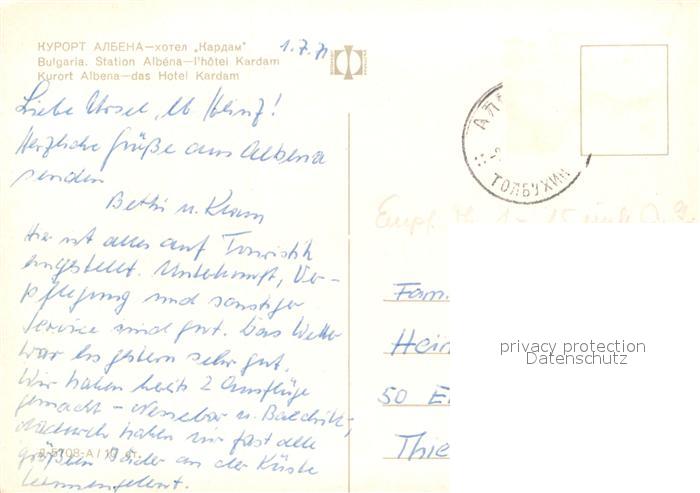 КУРОРТ АЛБЕНА—хотел „Кардам"
Bulgaria. Station Albéna—l'hôtel Kardam
Kurort Albena—das Hotel Kardam
1.7.71
Liebe Ursel, lb Heinz!
Herzliche Grüße aus Albena
senden
Bethi u. Klaus
Hier ist alles auf Touristik
eingestellt. Unterkunft, Ver-
pflegung und sonstiger
Service sind gut. Das Wetter
war bis gestern sehr gut.
Wir haben bereits 2 Ausflüge
gemacht - Nessebar u. Baltschik,
haben wir fast alle
größten Bäder an der Küste
kennengelernt.
ТОЛБУХИН
Empf.
Fam.
Hein
50 E
Thie
privacy protection
Datenschutz